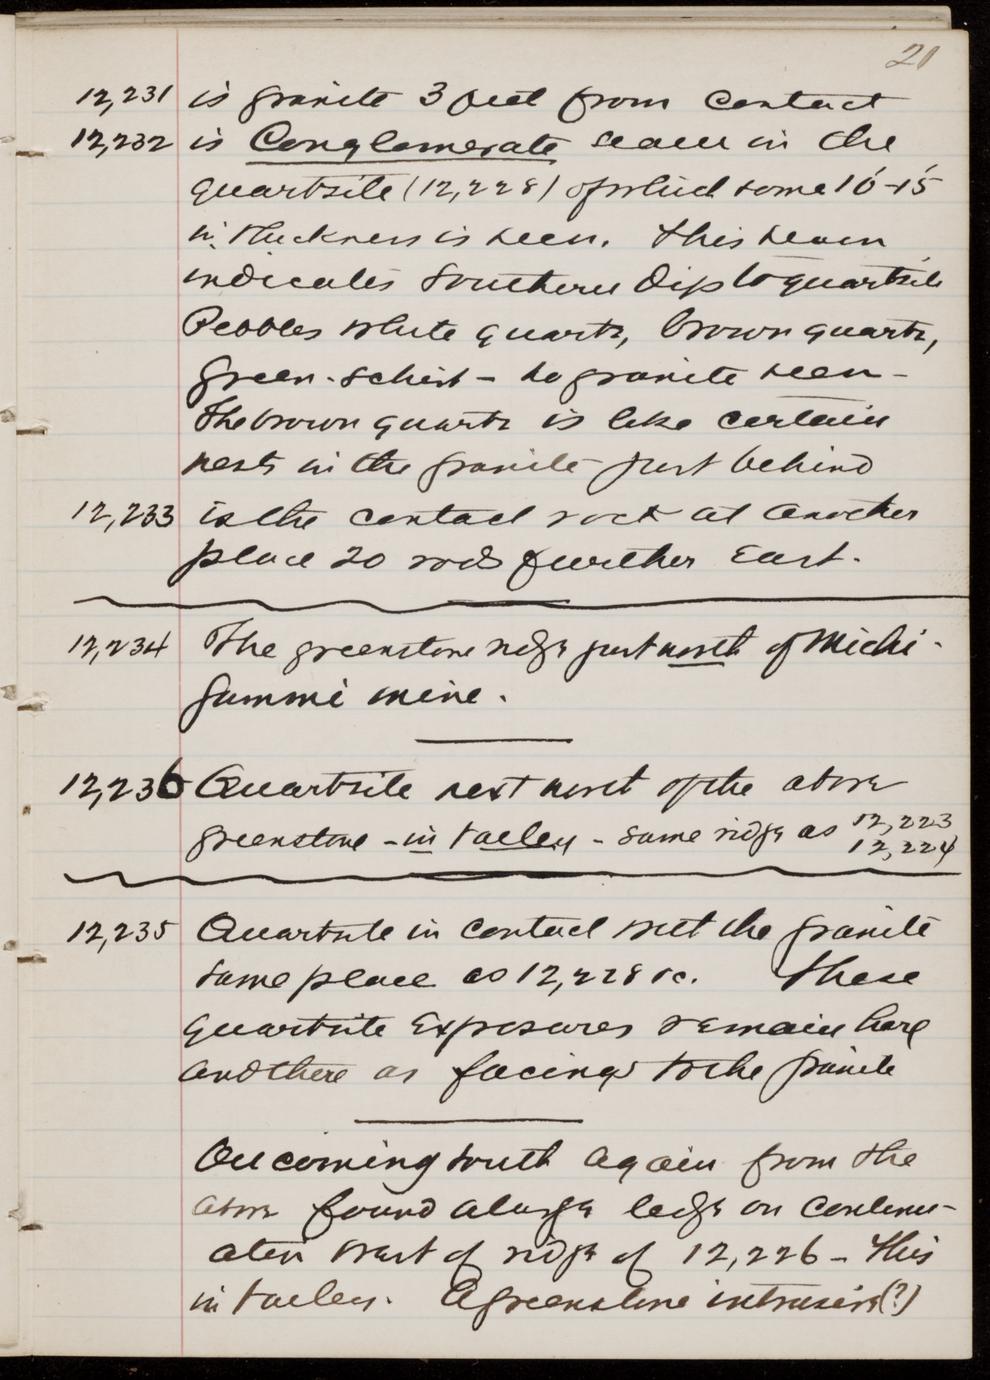 21
12,231 is granite 3 feet from contact
12,232 is Conglomerate seam in the
quartzite (12,228) of which some 10'-15'
in thickness is seen. This seam
indicates Southern Dip to quartzite
Pebbles white quartz, brown quartz,
Green-schist - no granite seen -
The brown quartz is like certain
nests in the granite just behind
12,233 is the contact rock at another
place 20 rods further East.
12,234 The greenstone ridge just north of Michi-
gummi mine.
12,236 Quartzite next north of the above
greenstone - in valley - same ridge as 12,223
12,224
12,235 Quartzite in contact with the granite
same place as 12,228 &c. These
quartzite Exposures remain here
and there as facings to the granite
On coming south again from the
above found a large ledge on continu-
ation west of ridge of 12,226 - this
in valley. A greenstone intrusive (?)